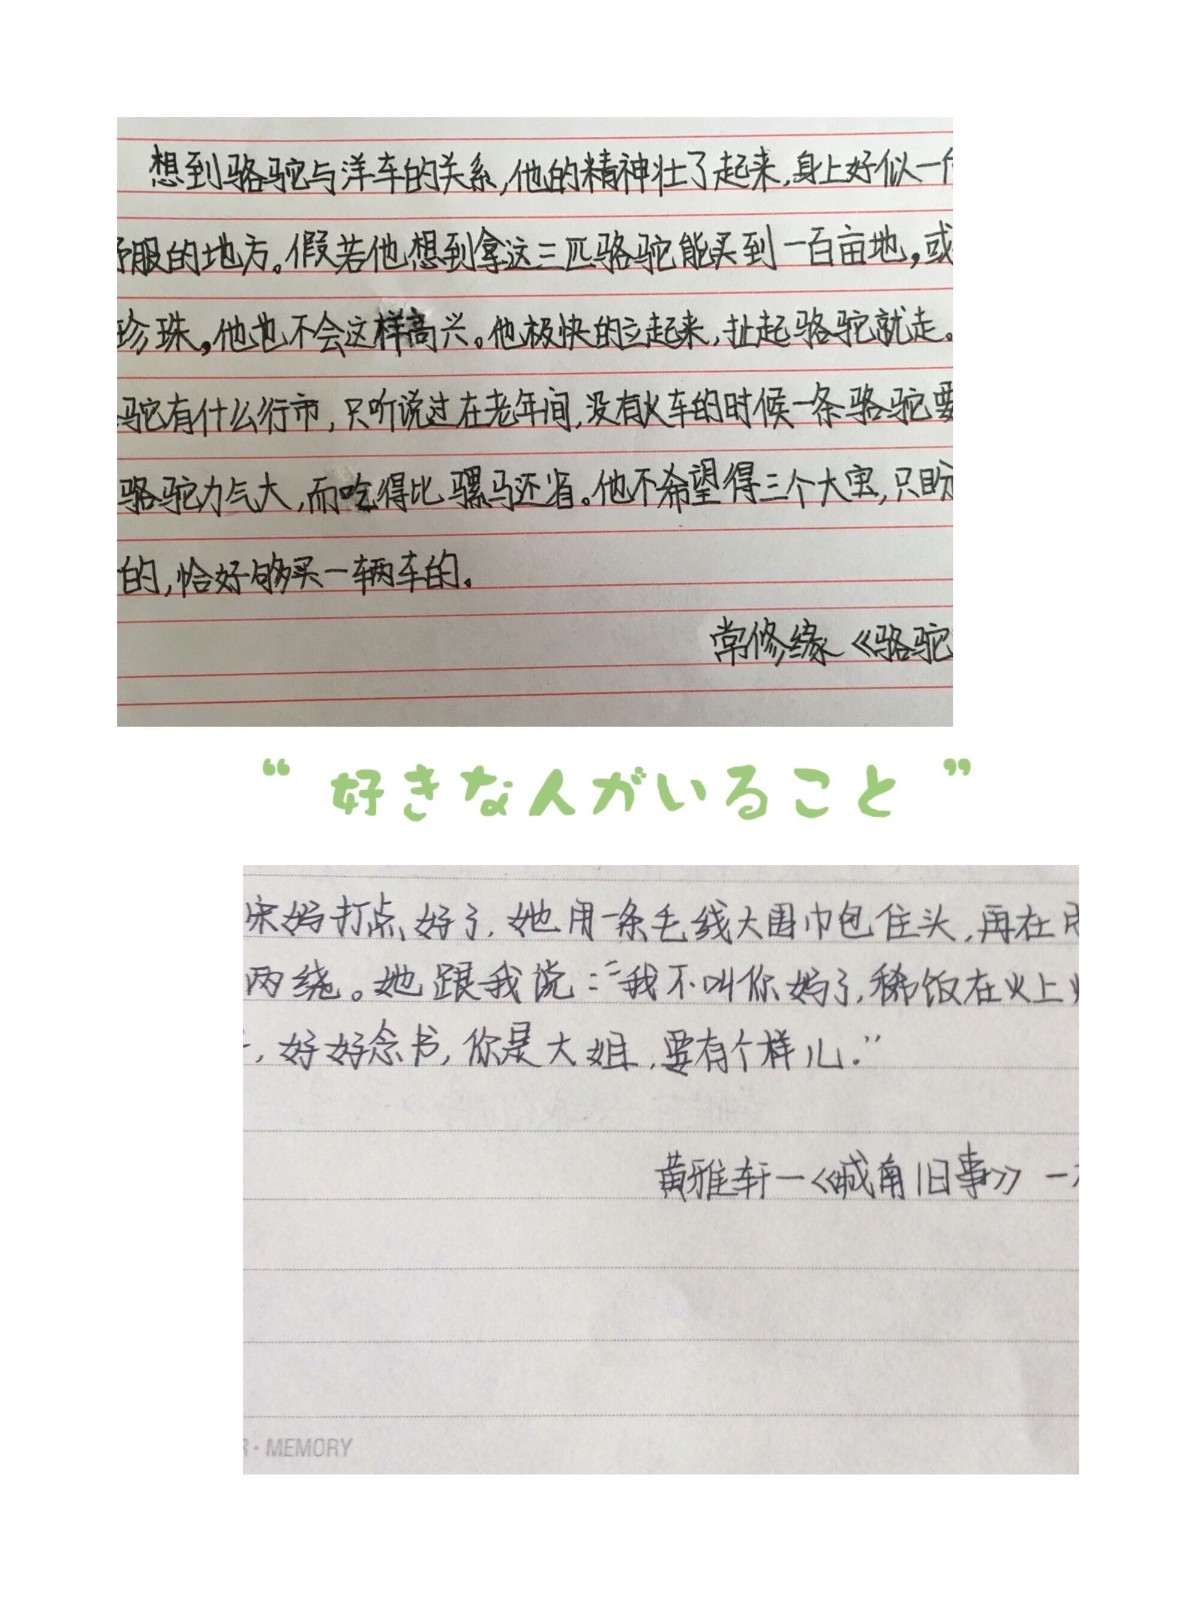 想到骆驼与洋车的关系,他的精神壮了起来,身上好似一
服的地方。假若他想到拿这三匹骆驼能买到一百亩地,或
珍珠,他也不会这样高兴。他极快的立起来,扯起骆驼就走。
驼有什么行市,只听说过在老年间,没有火车的时候一条骆驼要
骆驼力气大,而吃得比骡马还省。他不希望得三个大宝,只盼
的,恰好够买一辆车的。
常修缘《骆驼
“ 好きな人がいること ”
宋妈打点好了,她用一条毛线大围巾包住头,再在
两绕。她跟我说:“我不叫你妈了,稀饭在火上
,好好念书,你是大姐,要有个样儿.”
黄雅轩一《城南旧事》一
· MEMORY